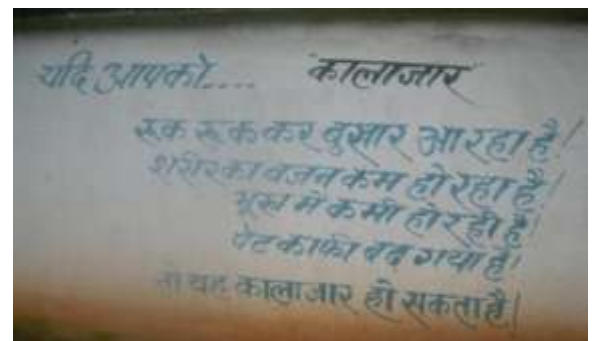 यदि आपको.... कालाजार
रूक रूक कर बुखार आ रहा है!
शरीर का वजन कम हो रहा है!
भूख मे कमी हो रही है!
पेट काफी बढ गया है!
तो यह कालाजार हो सकता है|